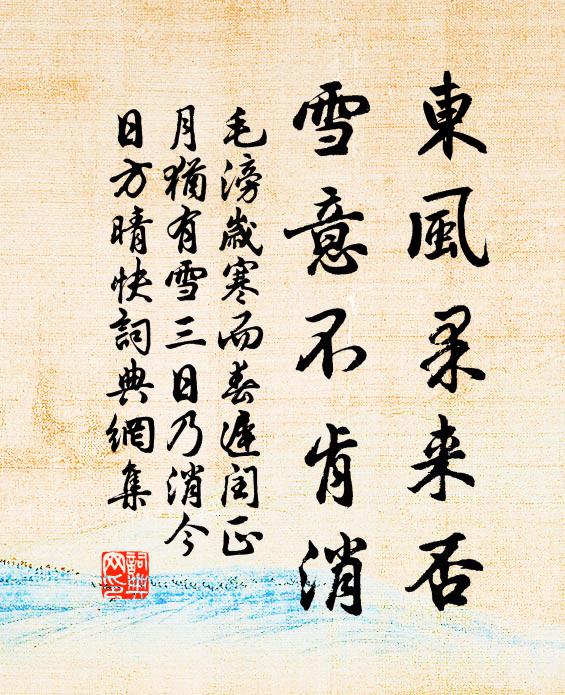 東風果来否
雪意不肯消
毛滂歲寒而春遲閏正
月猶有雪三日乃消今
日方晴快詞典網集
詞典
网